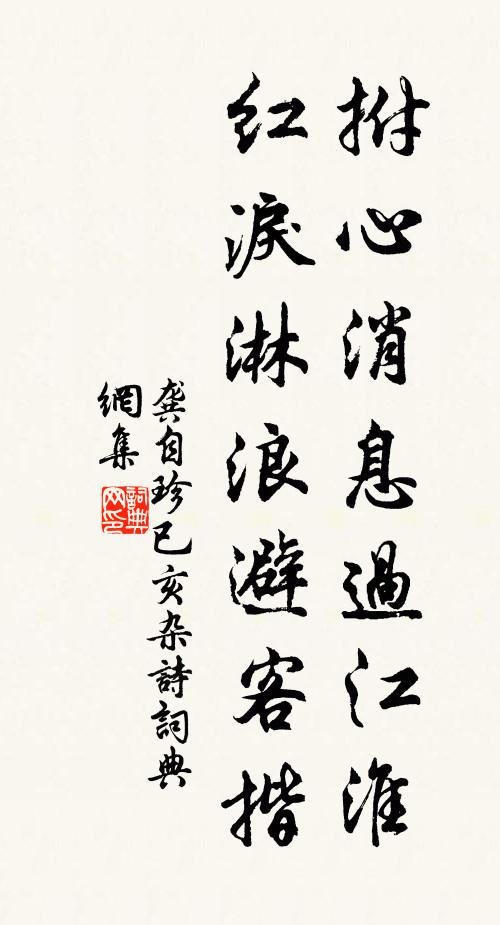 拊心消息過江淮
紅淚淋浪避客揩
龔自珍己亥杂詩詞典
網集
詞典
网印